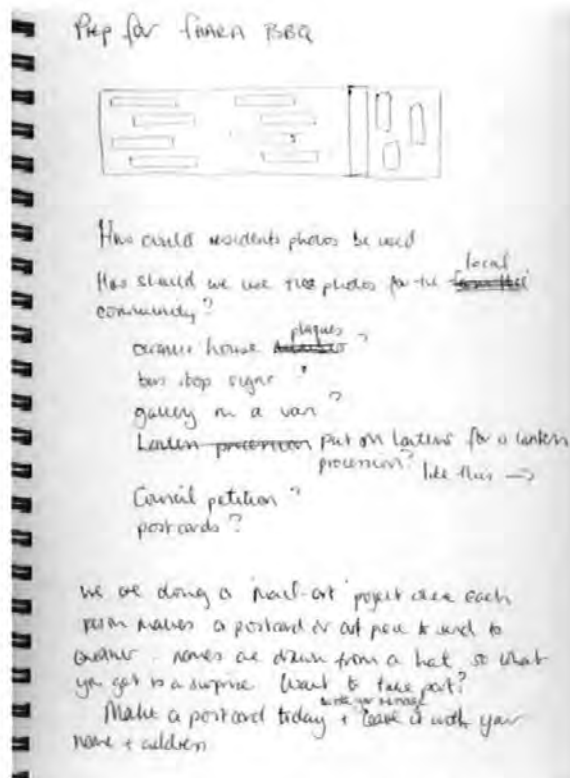 Prep for fHARA BBQ
How could residents photos be used
How should we use these photos for the local
community?
ceramic house plaques?
bus stop signs?
gallery in a van?
Lantern procession put on lanterns for a lantern
procession? like this →
Council petition?
postcards?
we are doing a 'mail-art' project where each
person makes a postcard or art piece to send to
another - names are drawn from a hat, so what
you get is a surprise. Want to take part?
Make a postcard today + leave it with your
name + address